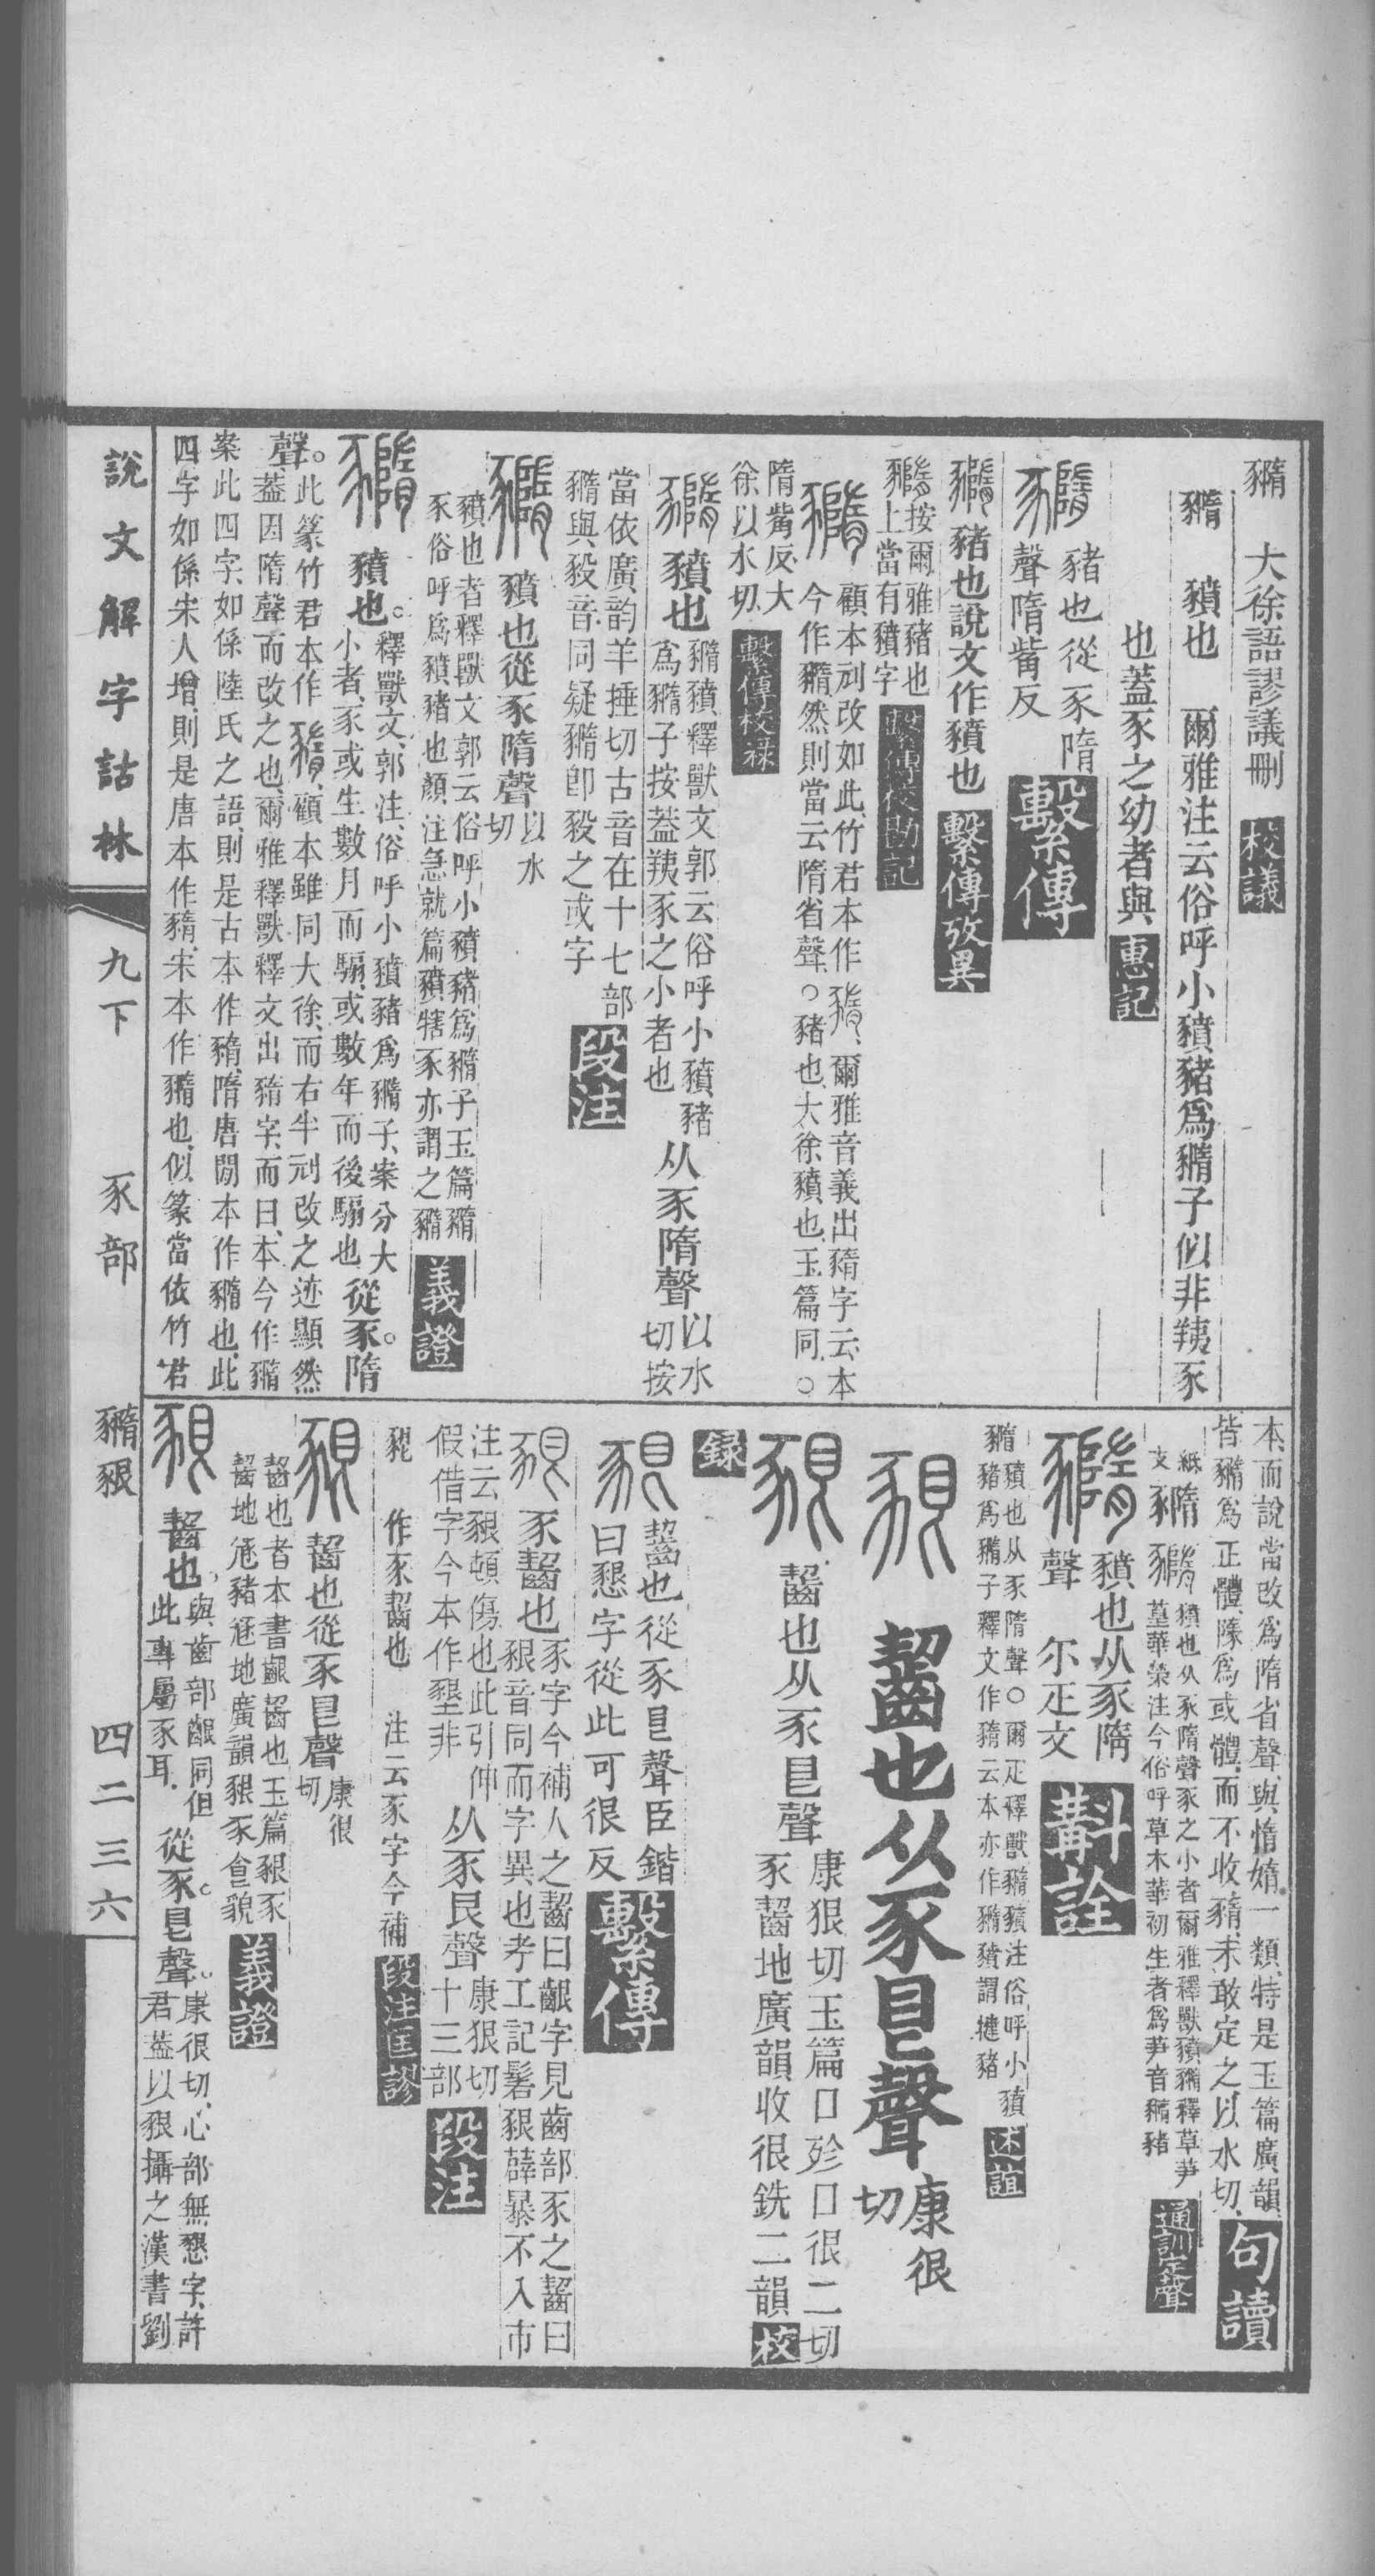 豶 大徐語謬議刪 校議
豶也 爾雅注云俗呼小豶豬爲䝐子似非羠豕
也蓋豕之幼者與 惠記
豬也從豕隋
聲隋觜反 繫傳
豬也說文作豶也 繫傳攷異
按爾雅豬也
豕上當有豶字 繫傳校勘記
顧本刓改如此竹君本作 爾雅音義出䝐字云本
今作䝐然則當云隋省聲○豬也大徐豶也玉篇同○
隋觜反大
徐以水切 繫傳校録
豶也 䝐豶釋獸文郭云俗呼小豶豬
爲䝐子按蓋羠豕之小者也 从豕隋聲 以水
切按
當依廣韵羊捶切古音在十七部
䝐與毅音同疑䝐卽毅之或字 段注
豶也從豕隋聲 以水
切
豶也者釋獸文郭云俗呼小豶豬爲䝐子玉篇䝐
豕俗呼爲豶豬也顏注急就篇豶犗豕亦謂之䝐 義證
豶也。釋獸文、郭注、俗呼小豶豬爲䝐子、案分大
小者、豕或生數月而騸、或數年而後騸也 從豕。隋
聲。此篆竹君本作 顧本雖同大徐、而右半刓改之迹顯然
蓋因隋聲而改之也、爾雅釋獸釋文出䝐字、而曰、本今作䝐
案此四字、如係陸氏之語、則是古本作䝐、隋唐閒本作䝐也、此
四字如係宋人增、則是唐本作䝐、宋本作䝐也、似篆當依竹君
本、而說當改爲隋省聲、與惰媠一類、特是玉篇廣韻
皆䝐爲正體、䝐爲或體、而不收䝐、未敢定之、以水切、 句讀
豶也从豕隋聲豕之小者爾雅釋獸豶䝐釋草芛
葟華榮注今俗呼草木華初生者爲芛音䝐豬 通訓定聲
豶也从豕隋
聲 尒疋文 斠詮
豶也从豕隋聲○爾疋釋獸䝐豶注俗呼小豶
豬爲䝐子釋文作䝐云本亦作䝐豶謂揵豬 述誼
齧也从豕㫐聲 康很
切
齧也从豕㫐聲 康狠切玉篇口殄口很二切
豕齧地廣韻收很銑二韻 校
録
齧也從豕㫐聲臣鍇
曰懇字從此可很反 繫傳
豕齧也 豕字今補人之齧曰齦字見齒部豕之齧曰
豤音同而字異也考工記髺豤薜暴不入市
注云豤頓傷也此引伸
假借字今本作墾非 从豕艮聲 康狠切
十三部 段注
豤 作豕齧也 注云豕字今補 段注匡謬
齧也從豕㫐聲 康很
切
齧也者本書齦齧也玉篇豤豕
齧地㣙豬㣙地廣韻豤豕食貌 義證
齧也。與齒部齦同、但
此專屬豕耳、 從豕。㫐聲。康很切、心部無懇字、許
君蓋以豤攝之漢書劉
說文解字詁林 九下 豕部 䝐豤 四二三六